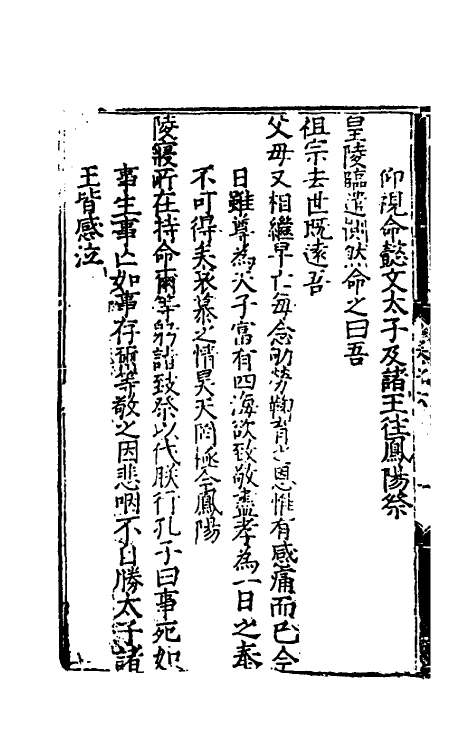 仰視命懿文太子及諸王往鳳陽祭
皇陵臨遣惻然命之曰吾
祖宗去世既遠吾
父母又相繼早亡每念劬勞鞠育之恩惟有感痛而已今
日雖尊為天子富有四海欲致敬盡孝為一日之奉
不可得矣哀慕之情昊天罔極今鳳陽
陵寢所在特命爾等躬詣致祭以代朕行孔子曰事死如
事生事亡如事存爾等敬之因悲咽不自勝太子諸
王皆感泣